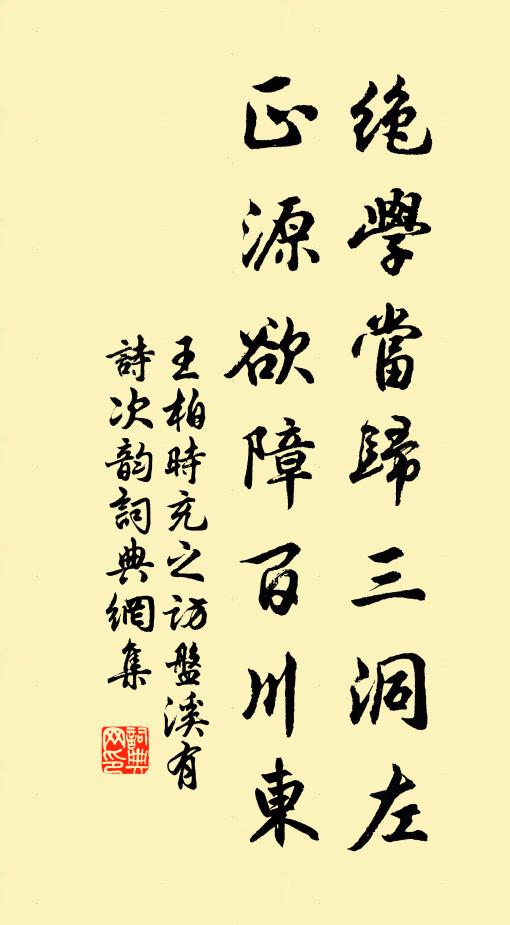 絶學當歸三洞左
正源欲障百川東
王柏時充之訪盤溪有
詩次韵詞典網集
詞典網印